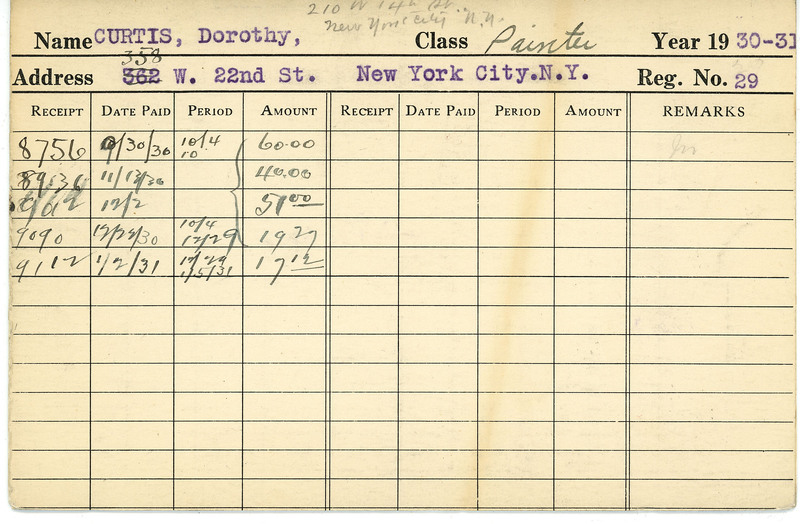 210 W 14th St.
New York City N.Y.
Name CURTIS, Dorothy, Class Painter Year 1930-31
358
Address 362 W. 22nd St. New York City.N.Y. Reg. No. 29
RECEIPT DATE PAID PERIOD AMOUNT RECEIPT DATE PAID PERIOD AMOUNT REMARKS
8756 9/30/30 10/4 60.00
8936 11/13/30 40.00
12/2 51.00
9090 12/22/30 10/4 12/29 19 27
9112 1/2/31 12/29 1/5/31 17 12